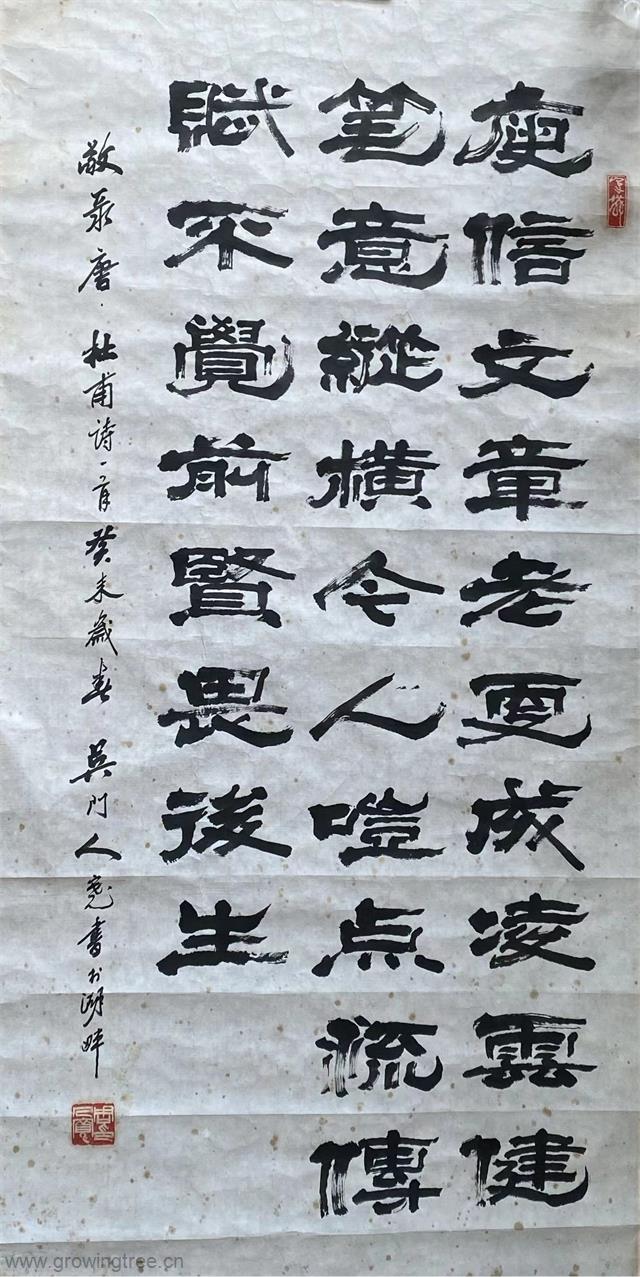 庾信文章老更成凌雲健
笔意縱橫今人嗤点流傳
賦不覺前賢畏後生
敬录唐·杜甫诗一首癸未歲春 吴门人尧書於湖畔
www.growingtree.cn